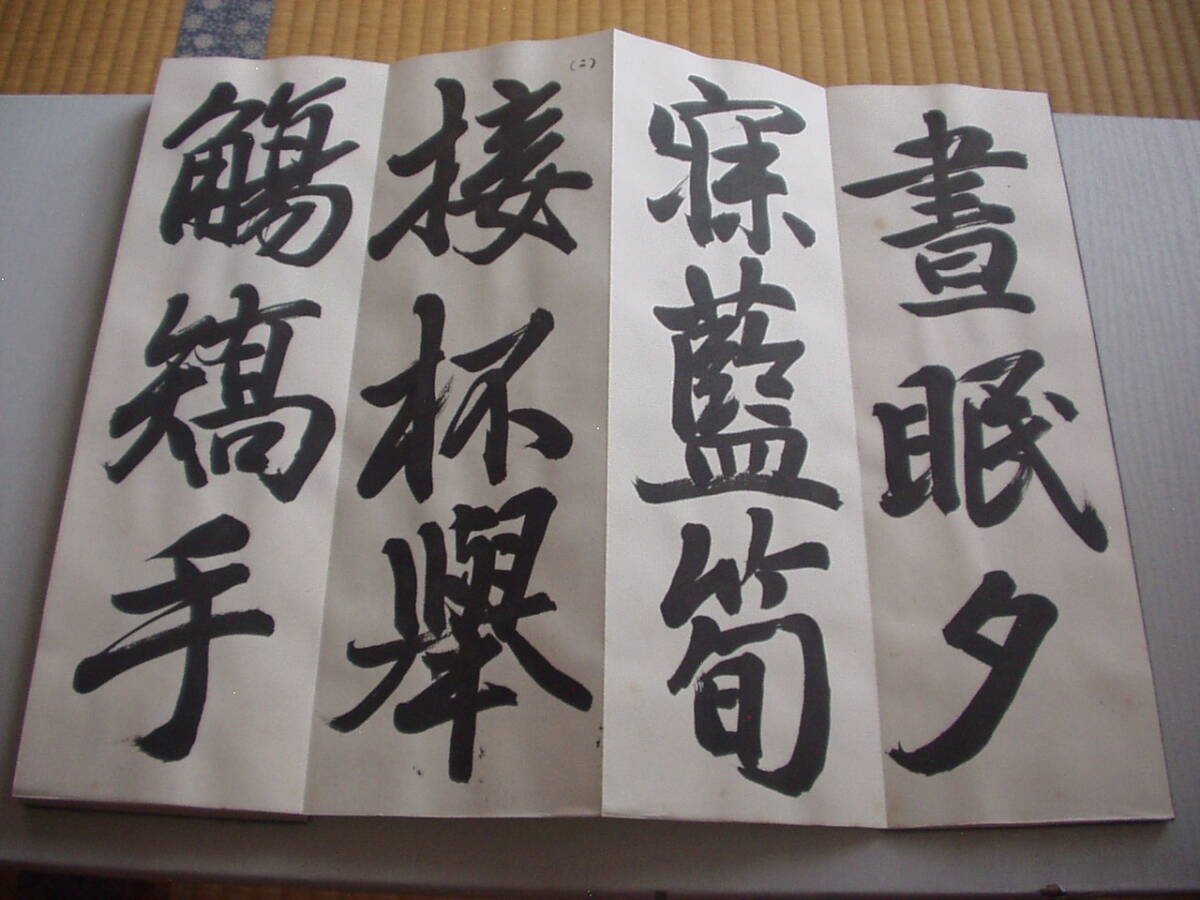 晝眠夕
寐藍筍
(二)
接杯舉
觴矯手